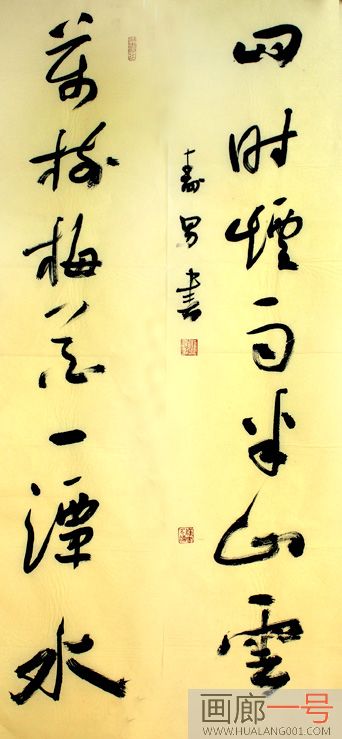 四时煙雨半山雲
萬樹梅花一潭水
壽書
画廊一号
WWW.HUALANG001.COM